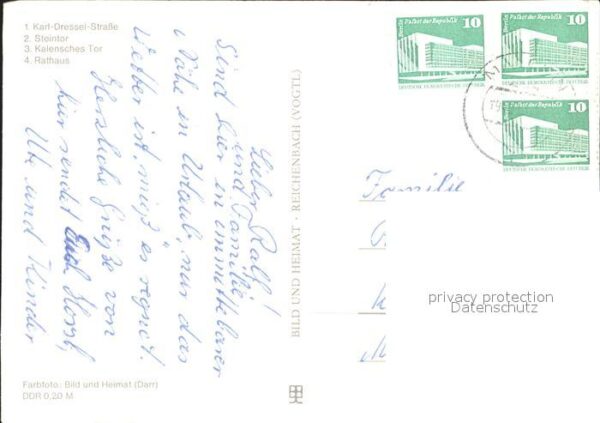 1. Karl-Dressel-Straße
2. Steintor
3. Kalensches Tor
4. Rathaus
Lieber Ralf!
und Familie!
Sind hier in unmittelbarer
Nähe in Urlaub, nur das
Wetter ist mieß, es regnet.
Herzliche Grüße von
hier sendet Euch Horst,
Ute und Kinder
Farbfoto: Bild und Heimat (Darr)
DDR 0,20 M
BILD UND HEIMAT · REICHENBACH (VOGTL)
Berlin Palast der Republik 10
DEUTSCHE DEMOKRATISCHE REPUBLIK
Berlin Palast der Republik 10
DEUTSCHE DEMOKRATISCHE REPUBLIK
Berlin Palast der Republik 10
DEUTSCHE DEMOKRATISCHE REPUBLIK
Familie
privacy protection
Datenschutz